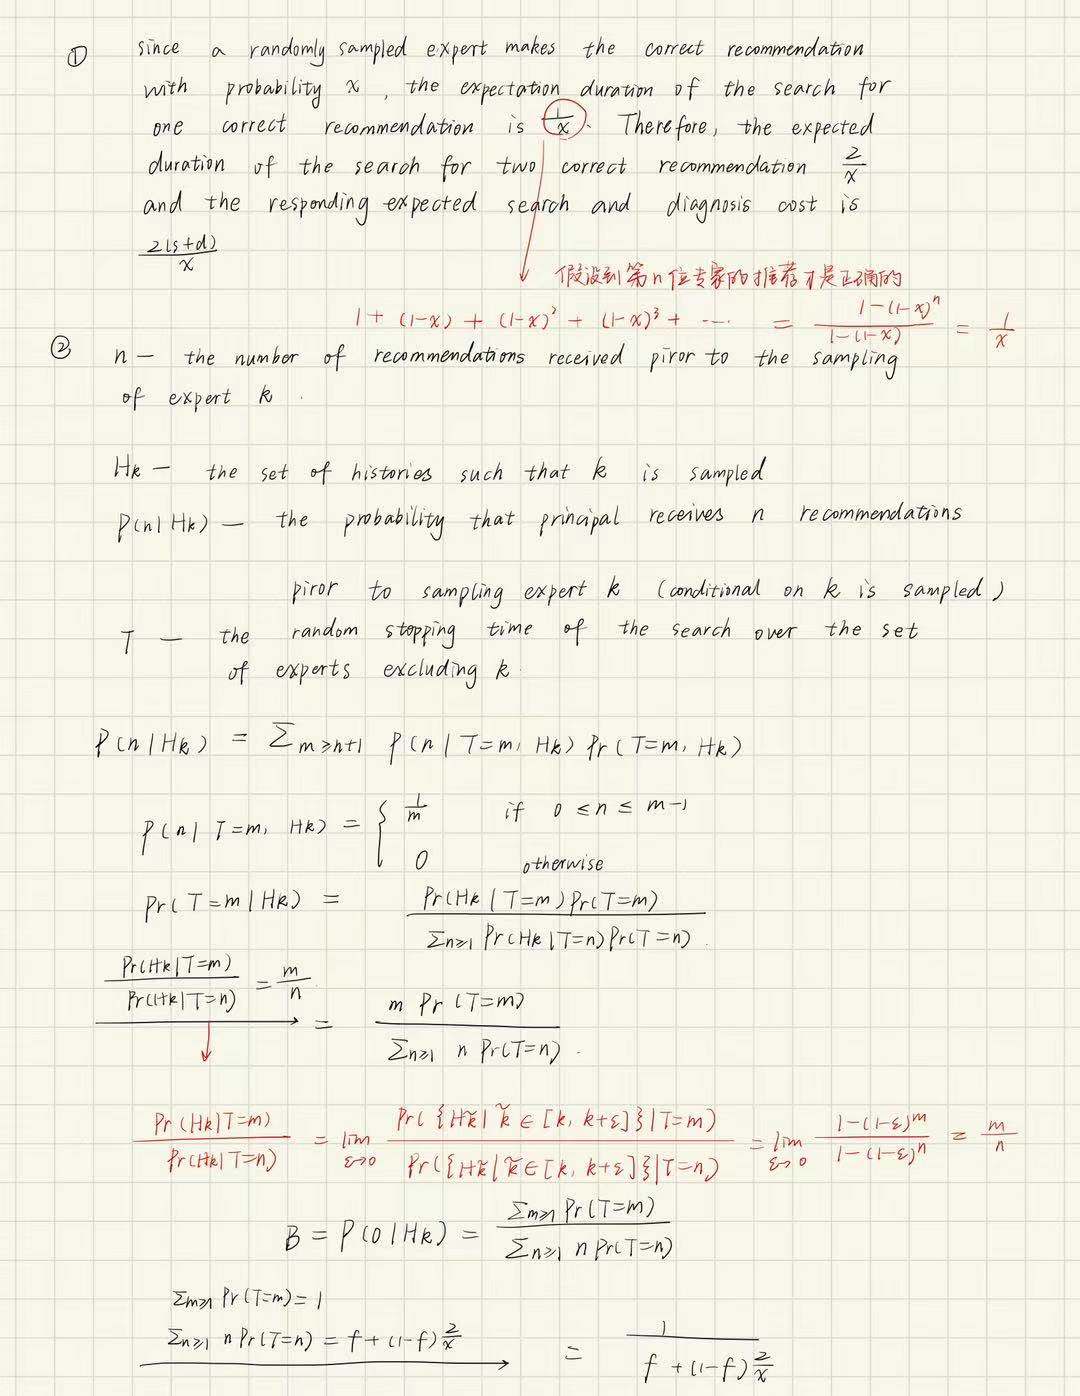 ① since a randomly sampled expert makes the correct recommendation
with probability x , the expectation duration of the search for
one correct recommendation is 1/x. Therefore, the expected
duration of the search for two correct recommendation 2/x
and the responding expected search and diagnosis cost is
2(s+d)/x
假设到第n位专家的推荐才是正确的
1 + (1-x) + (1-x)² + (1-x)³ + ---- = (1-(1-x)ⁿ)/(1-(1-x)) = 1/x
② n — the number of recommendations received piror to the sampling
of expert k .
Hk — the set of histories such that k is sampled
P(n|Hk) — the probability that principal receives n recommendations
piror to sampling expert k (conditional on k is sampled)
T — the random stopping time of the search over the set
of experts excluding k.
P(n|Hk) = Σm≥n+1 P(n|T=m, Hk) Pr(T=m, Hk)
P(n|T=m, Hk) = { 1/m if 0 ≤ n ≤ m-1
0 otherwise
Pr(T=m|Hk) = Pr(Hk|T=m)Pr(T=m) / Σn≥1 Pr(Hk|T=n)Pr(T=n) .
Pr(Hk|T=m) / Pr(Hk|T=n) = m/n
= m Pr(T=m) / Σn≥1 n Pr(T=n) .
Pr(Hk|T=m) / Pr(Hk|T=n) = lim ε→0 Pr({Hk̃|k̃∈[k, k+ε]}|T=m) / Pr({Hk̃|k̃∈[k, k+ε]}|T=n) = lim ε→0 (1-(1-ε)ᵐ)/(1-(1-ε)ⁿ) = m/n
B = P(0|Hk) = Σm≥1 Pr(T=m) / Σn≥1 n Pr(T=n)
Σm≥1 Pr(T=m) = 1
Σn≥1 n Pr(T=n) = f+(1-f) 2/x
= 1 / (f+(1-f) 2/x)